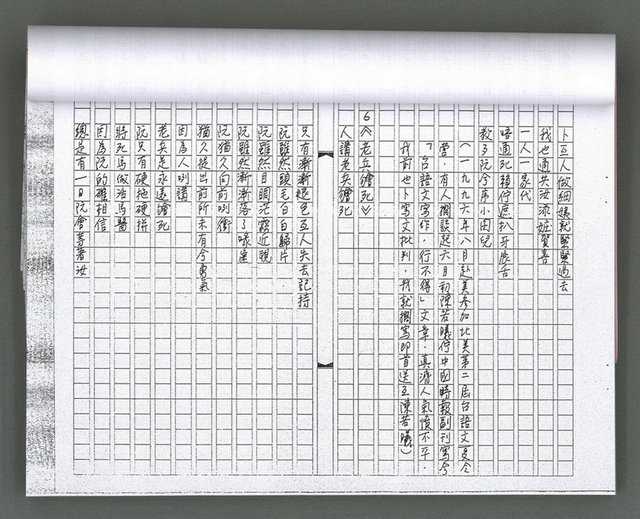 卜互人做細姨就緊緊過去
我也通共汝添妝賀喜
一人一家代
唔通死賴佇遮扒牙痕舌
教歹阮兮序小囝兒
(一九九六年八月赴美參加北美第二屆台語文夏令
營,有人擱談起六月初陳若曦佇中國時報副刊寫兮
「台語文寫作,行不得」文章,真濟人氣憤不平,
我前也卜寫文批判,我就擱寫即首送互陳若曦)
6《老兵𣍐死》
人講老兵𣍐死
只有漸漸褪色互人失去記持
阮雖然頭毛白白歸片
阮雖然目睭茫霧近視
阮雖然漸漸落了喙齒
阮猶久向前咧衝
猶久提出前所未有兮勇氣
因為人咧講
老兵是永遠𣍐死
阮只有硬拖硬拼
將死馬做活馬醫
因為阮的確相信
總是有一日阮會等著汝